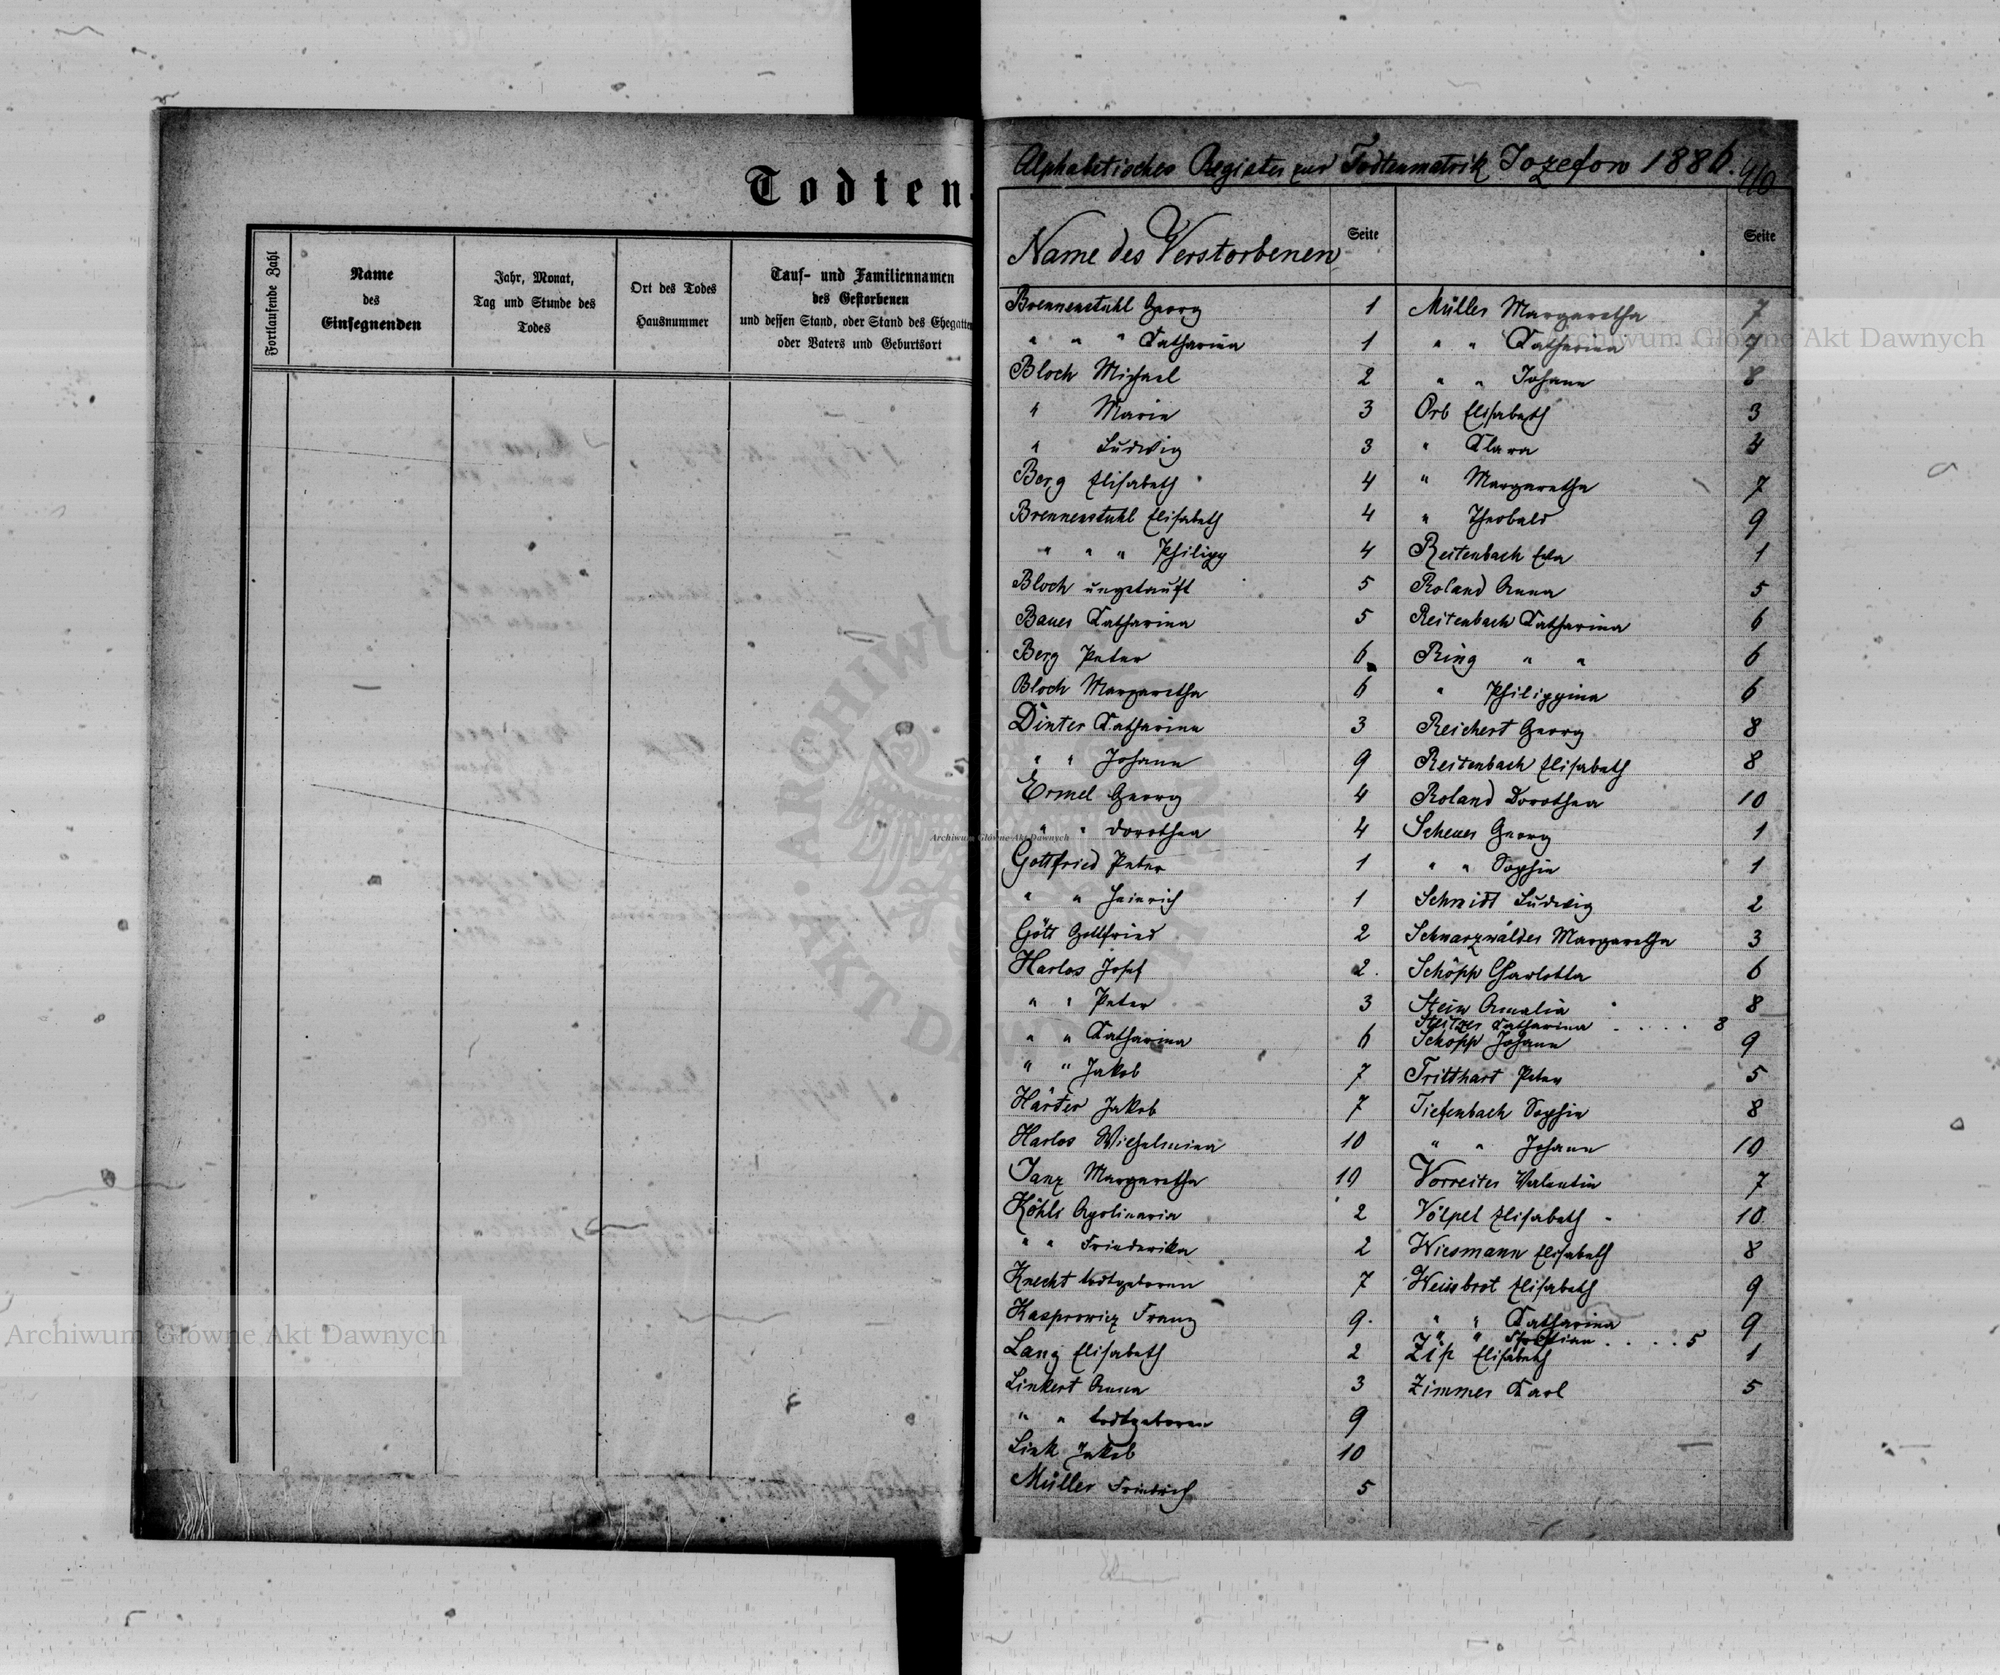 Todten-
Fortlaufende Zahl
Name
des
Einsegnenden
Jahr, Monat,
Tag und Stunde des
Todes
Ort des Todes
Hausnummer
Tauf- und Familiennamen
des Gestorbenen
und dessen Stand, oder Stand des Ehegatten
oder Vaters und Geburtsort
Alphabetisches Register zur Todtenmatrik Jozefow 1886.
46
Name des Verstorbenen
Seite
Seite
Brennenstuhl Georg 1
" " " Katharina 1
Bloch Michael 2
" Maria 3
" Ludwig 3
Berg Elisabeth 4
Brennenstuhl Elisabeth 4
" " " Philipp 4
Bloch ungetauft 5
Bauer Katharina 5
Berg Peter 6
Bloch Margaretha 6
Dinter Katharina 3
" " Johann 9
Ermel Georg 4
" " Dorothea 4
Gottfried Peter 1
" " Heinrich 1
Gött Gottfried 2
Harlos Josef 2.
" " Peter 3
" " Katharina 6
" " Jakob 7
Härter Jakob 7
Harlos Wilhelmina 10
Janz Margaretha 10
Köhli Apolinaria 2
" " Friederika 2
Knecht todtgeboren 7
Kasprowicz Franz 9.
Lang Elisabeth 2
Linkert Anna 3
" " todtgeboren 9
Link Jakob 10
Müller Friedrich 5
Müller Margaretha 7
" " Katharina 7
" " Johann 8
Orb Elisabeth 3
" Klara 4
" Margaretha 7
" Theobald 9
Reitenbach Eva 1
Roland Anna 5
Reitenbach Katharina 6
Ring " " 6
" Philippina 6
Reichert Georg 8
Reitenbach Elisabeth 8
Roland Dorothea 10
Scheuer Georg 1
" " Sophie 1
Schmidt Ludwig 2
Schwarzwälder Margaretha 3
Schöpp Charlotta 6
Stein Amalia 8
Steitzer Katharina . . . . . 8
Schöpp Johann 9
Tritthart Peter 5
Tiefenbach Sophie 8
" " Johann 10
Vorreiter Valentin 7
Völpel Elisabeth 10
Wiesmann Elisabeth 8
Weissbrot Elisabeth 9
" " Katharina 9
" " . . . . 5
Zip Elisabeth 1
Zimmer Karl 5
Archiwum Główne Akt Dawnych
Archiwum Główne Akt Dawnych
Archiwum Główne Akt Dawnych